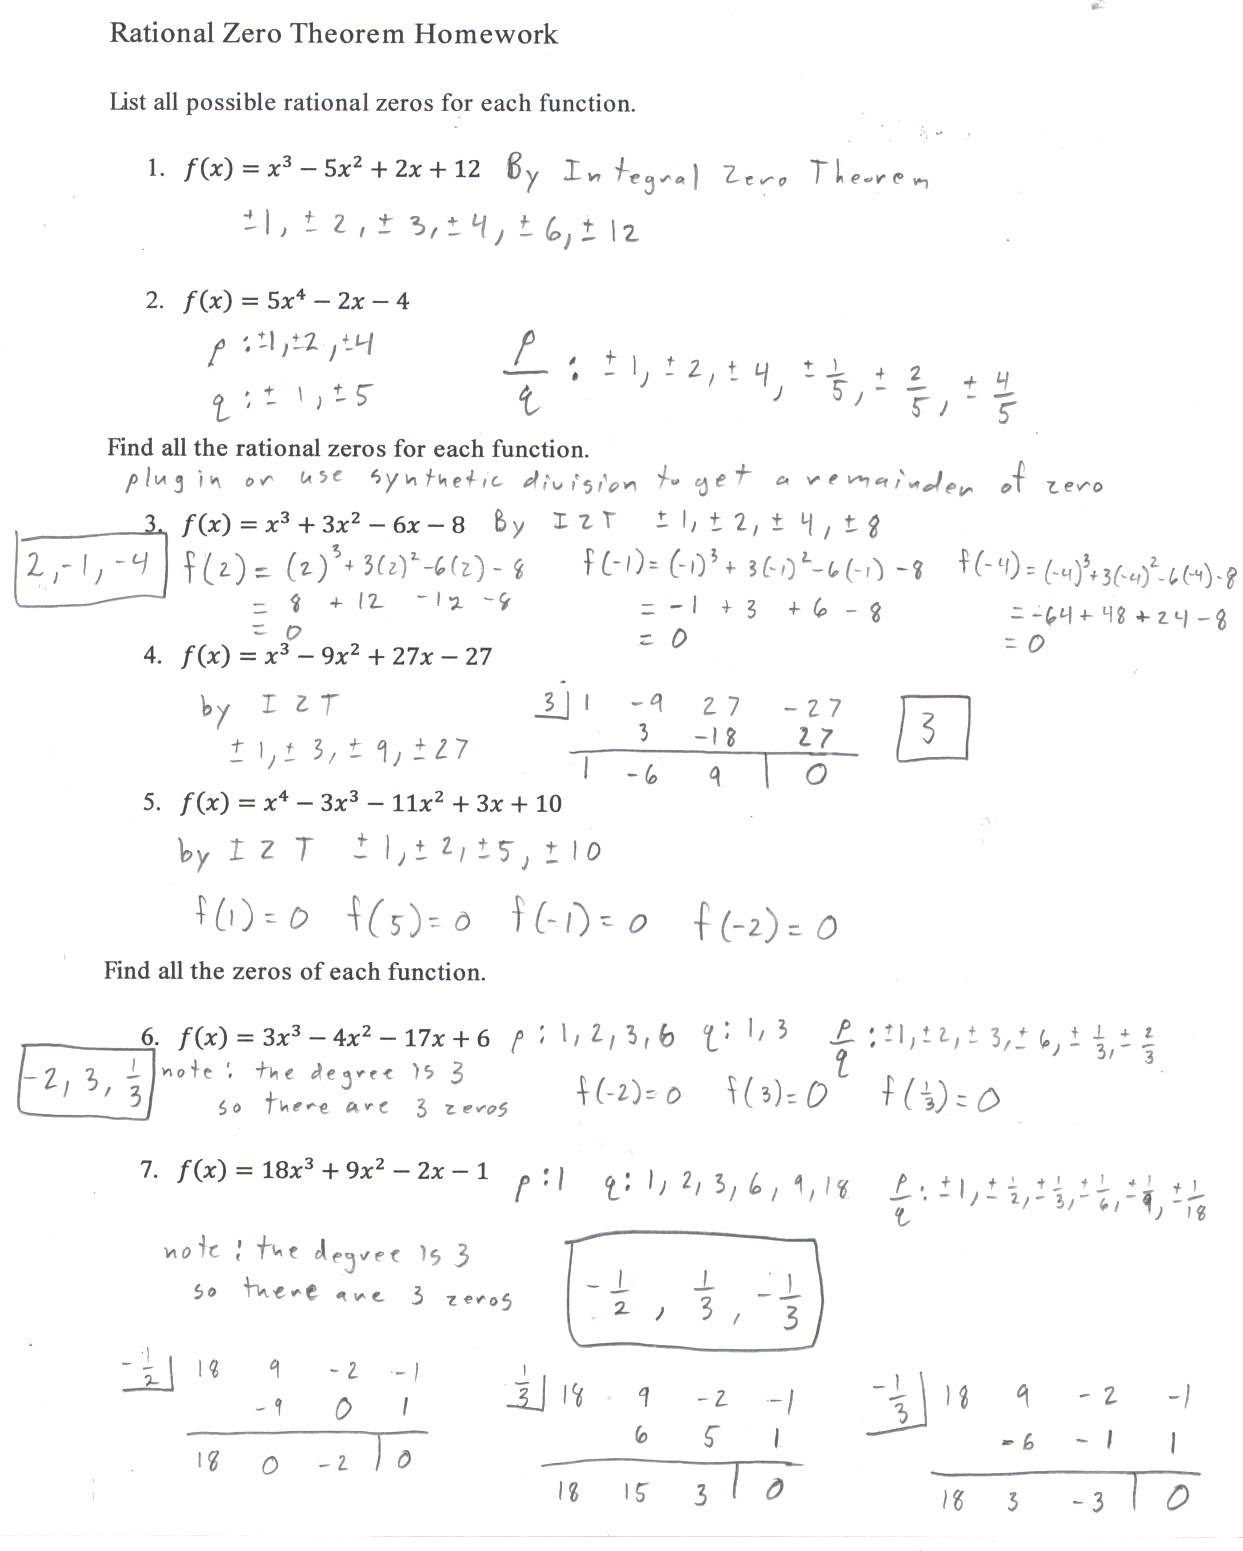 Rational Zero Theorem Homework
List all possible rational zeros for each function.
1. f(x) = x³ − 5x² + 2x + 12 By Integral Zero Theorem
±1, ±2, ±3, ±4, ±6, ±12
2. f(x) = 5x⁴ − 2x − 4
p : ±1, ±2, ±4
q : ±1, ±5
p/q : ±1, ±2, ±4, ±1/5, ±2/5, ±4/5
Find all the rational zeros for each function.
plug in or use synthetic division to get a remainder of zero
3. f(x) = x³ + 3x² − 6x − 8 By IZT ±1, ±2, ±4, ±8
2, -1, -4
f(2) = (2)³ + 3(2)² - 6(2) - 8
= 8 + 12 - 12 - 8
= 0
f(-1) = (-1)³ + 3(-1)² - 6(-1) - 8
= -1 + 3 + 6 - 8
= 0
f(-4) = (-4)³ + 3(-4)² - 6(-4) - 8
= -64 + 48 + 24 - 8
= 0
4. f(x) = x³ − 9x² + 27x − 27
by IZT
±1, ±3, ±9, ±27
3 | 1 -9 27 -27
3 -18 27
1 -6 9 | 0
3
5. f(x) = x⁴ − 3x³ − 11x² + 3x + 10
by IZT ±1, ±2, ±5, ±10
f(1) = 0 f(5) = 0 f(-1) = 0 f(-2) = 0
Find all the zeros of each function.
6. f(x) = 3x³ − 4x² − 17x + 6 p : 1, 2, 3, 6 q : 1, 3 p/q : ±1, ±2, ±3, ±6, ±1/3, ±2/3
-2, 3, 1/3
note : the degree is 3
so there are 3 zeros
f(-2) = 0 f(3) = 0 f(1/3) = 0
7. f(x) = 18x³ + 9x² − 2x − 1 p : 1 q : 1, 2, 3, 6, 9, 18 p/q : ±1, ±1/2, ±1/3, ±1/6, ±1/9, ±1/18
note : the degree is 3
so there are 3 zeros
-1/2, 1/3, -1/3
-1/2 | 18 9 -2 -1
-9 0 1
18 0 -2 | 0
1/3 | 18 9 -2 -1
6 5 1
18 15 3 | 0
-1/3 | 18 9 -2 -1
-6 -1 1
18 3 -3 | 0